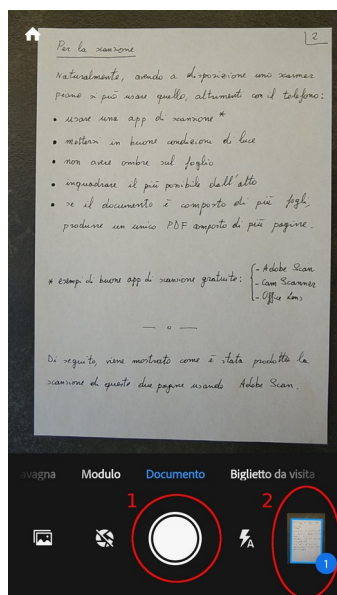 2
Per la scansione
Naturalmente, avendo a disposizione uno scanner
piano si può usare quello, altrimenti con il telefono:
• usare una app di scansione *
• mettersi in buone condizioni di luce
• non avere ombre sul foglio
• inquadrare il più possibile dall'alto
• se il documento è composto di più fogli,
produrre un unico PDF composto di più pagine.
* esempi di buone app di scansione gratuite: { - Adobe Scan
- Cam Scanner
- Office Lens
— o —
Di seguito, viene mostrato come è stata prodotta la
scansione di queste due pagine usando Adobe Scan.
avagna Modulo Documento Biglietto da visita
1 2
A
1